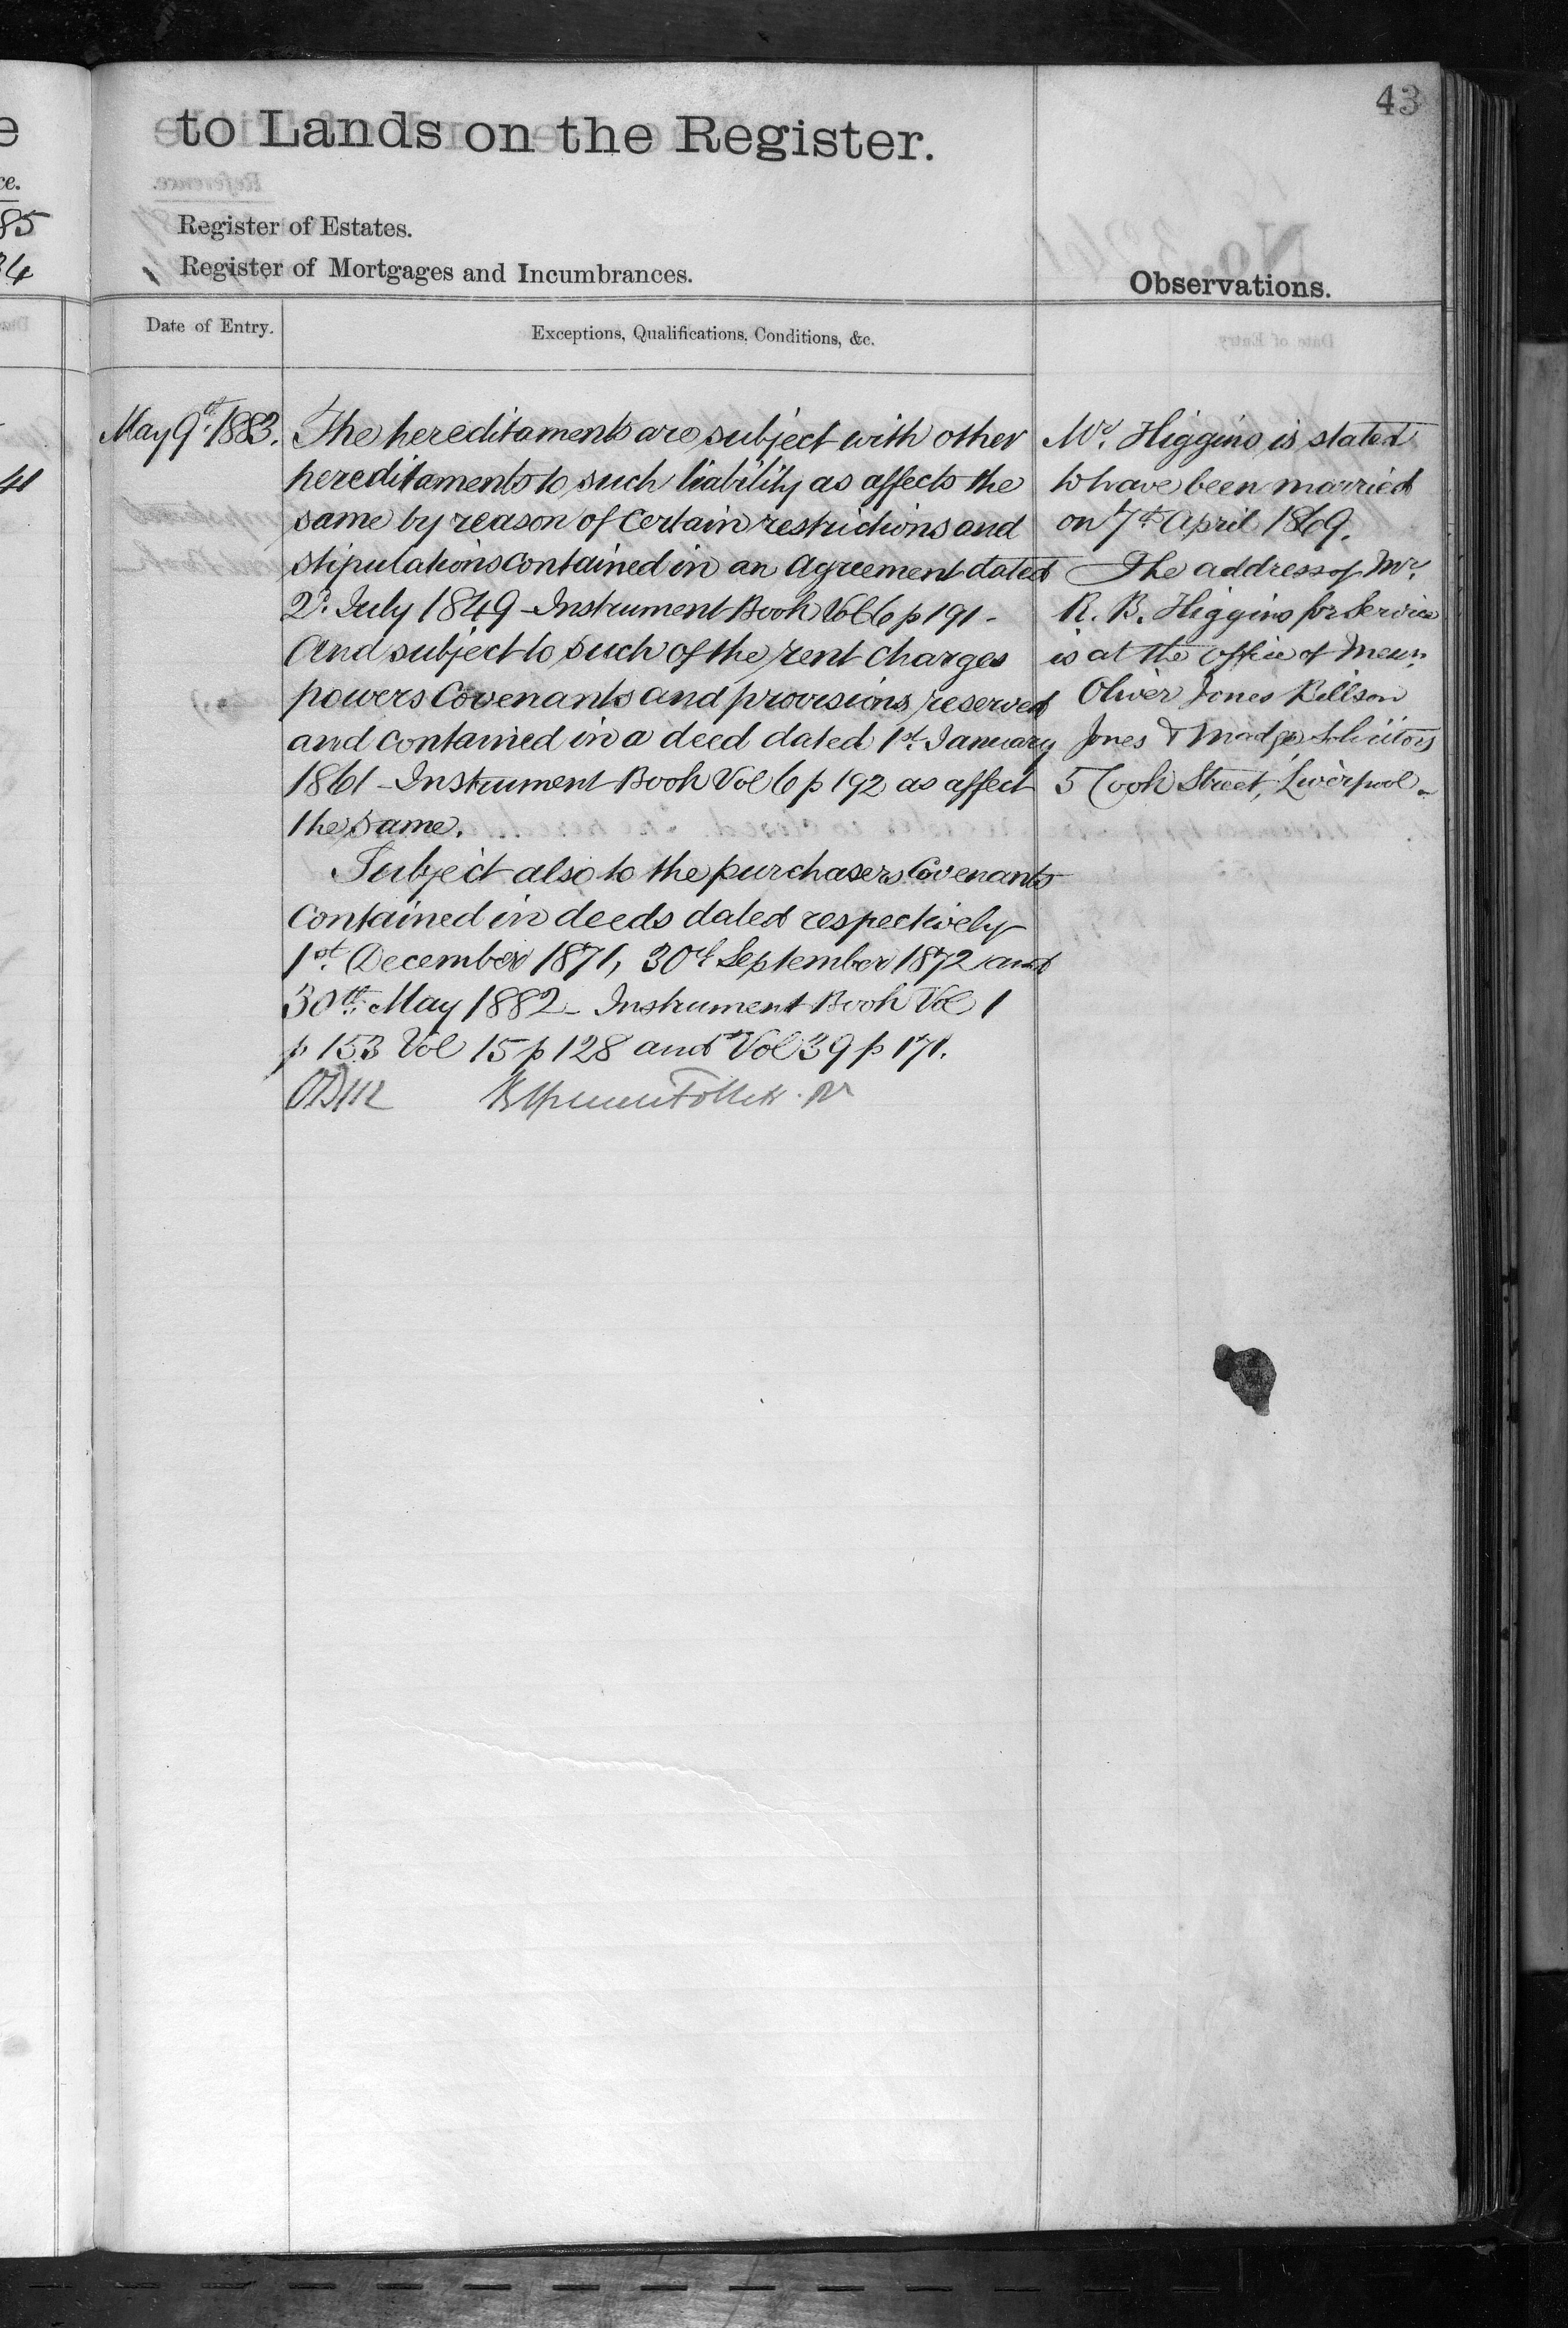 43
to Lands on the Register.
Register of Estates.
Register of Mortgages and Incumbrances.
Observations.
Date of Entry.
Exceptions, Qualifications, Conditions, &c.
May 9th 1883.
The hereditaments are subject with other
hereditaments to such liability as affects the
same by reason of certain restrictions and
stipulations contained in an agreement dated
2d. July 1849 - Instrument Book Vol 6 p 191 -
And subject to such of the rent charges
powers covenants and provisions reserved
and contained in a deed dated 1st. January
1861 - Instrument Book Vol 6 p 192 as affect
the same.
Subject also to the purchasers covenants
contained in deeds dated respectively
1st. December 1871, 30th September 1872 and
30th. May 1882 - Instrument Book Vol 1
p 153 Vol 15 p 128 and Vol 39 p 171.
Mr. Higgins is stated
to have been married
on 7th April 1869.
The address of Mr.
R. B. Higgins for service
is at the office of Messrs.
Oliver Jones Billson
Jones & Madge, Solicitors
5 Cook Street, Liverpool -